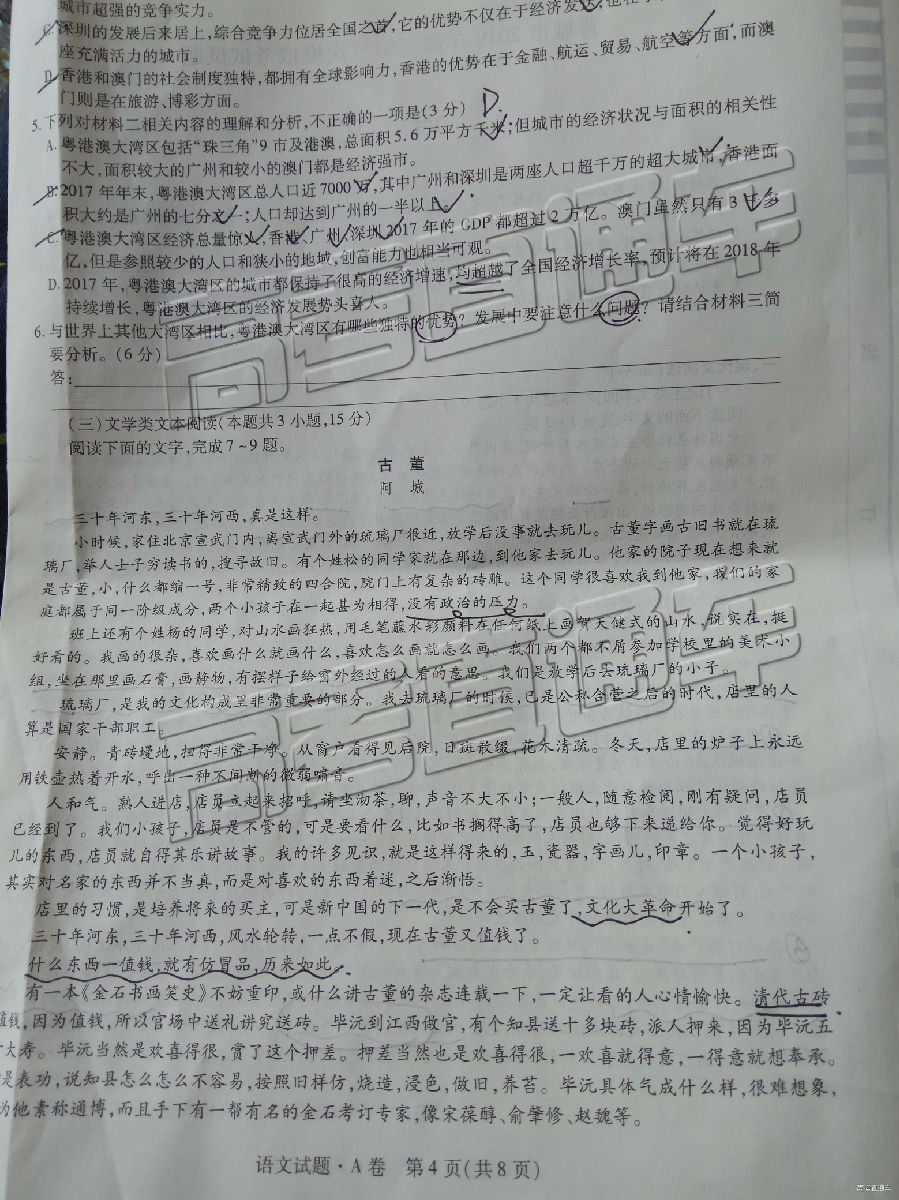 城市超强的竞争实力。
C.深圳的发展后来居上,综合竞争力位居全国之首,它的优势不仅在于经济发达,也在
座充满活力的城市。
D.香港和澳门的社会制度独特,都拥有全球影响力,香港的优势在于金融、航运、贸易、航空等方面,而澳
门则是在旅游、博彩方面。
5.下列对材料二相关内容的理解和分析,不正确的一项是(3分) D.
A.粤港澳大湾区包括“珠三角”9市及港澳,总面积5.6万平方千米;但城市的经济状况与面积的相关性
不大,面积较大的广州和较小的澳门都是经济强市。
B.2017年年末,粤港澳大湾区总人口近7000万,其中广州和深圳是两座人口超千万的超大城市,香港面
积大约是广州的七分之一;人口却达到广州的一半以上。
C.粤港澳大湾区经济总量惊人,香港、广州、深圳2017年的GDP都超过2万亿。澳门虽然只有3千多
亿,但是参照较少的人口和狭小的地域,创富能力也相当可观。
D.2017年,粤港澳大湾区的城市都保持了很高的经济增速,均超越了全国经济增长率,预计将在2018年
持续增长,粤港澳大湾区的经济发展势头喜人。
6.与世界上其他大湾区相比,粤港澳大湾区有哪些独特的优势?发展中要注意什么问题?请结合材料三简
要分析。(6分)
答:
(三)文学类文本阅读(本题共3小题,15分)
阅读下面的文字,完成7~9题。
古董
阿城
三十年河东,三十年河西,真是这样。
小时候,家住北京宣武门内,离宣武门外的琉璃厂很近,放学后没事就去玩儿。古董字画古旧书就在琉
璃厂,举人士子穷读书的,搜寻故旧。有个姓松的同学家就在那边,到他家去玩儿。他家的院子现在想来就
是古董,小,什么都缩一号,非常精致的四合院,院门上有复杂的砖雕。这个同学很喜欢我到他家,我们的家
庭都属于同一阶级成分,两个小孩子在一起甚为相得,没有政治的压力。
班上还有个姓杨的同学,对山水画狂热,用毛笔蘸水彩颜料在任何纸上画贺天健式的山水,说实在,挺
好看的。我画的很杂,喜欢画什么就画什么,喜欢怎么画就怎么画。我们两个都不屑参加学校里的美术小
组,坐在那里画石膏,画静物,有摆样子给窗外经过的人看的意思。我们是放学后去琉璃厂的小子。
琉璃厂,是我的文化构成里非常重要的部分。我去琉璃厂的时候,已是公私合营之后的时代,店里的人
算是国家干部职工。
安静。青砖墁地,扫得非常干净。从窗户看得见后院,日斑散缀,花木清疏。冬天,店里的炉子上永远
用铁壶热着开水,呼出一种不间断的微弱啸音。
人和气。熟人进店,店员立起来招呼,请坐沏茶,聊,声音不大不小;一般人,随意检阅,刚有疑问,店员
已经到了。我们小孩子,店员是不管的,可是要看什么,比如书搁得高了,店员也够下来递给你。觉得好玩
儿的东西,店员就自得其乐讲故事。我的许多见识,就是这样得来的,玉,瓷器,字画儿,印章。一个小孩子,
其实对名家的东西并不当真,而是对喜欢的东西着迷,之后渐悟。
店里的习惯,是培养将来的买主,可是新中国的下一代,是不会买古董了,文化大革命开始了。
三十年河东,三十年河西,风水轮转,一点不假,现在古董又值钱了。
什么东西一值钱,就有仿冒品,历来如此。
有一本《金石书画笑史》不妨重印,或什么讲古董的杂志连载一下,一定让看的人心情愉快。清代古砖
值钱,因为值钱,所以官场中送礼讲究送砖。毕沅到江西做官,有个知县送十多块砖,派人押来,因为毕沅五
大寿。毕沅当然是欢喜得很,赏了这个押差。押差当然也是欢喜得很,一欢喜就得意,一得意就想奉承。
是表功,说知县怎么怎么不容易,按照旧样仿,烧造,浸色,做旧,养苔。毕沅具体气成什么样,很难想象,
为他素称通博,而且手下有一帮有名的金石考订专家,像宋葆醇、俞肇修、赵魏等。
语文试题·A卷 第4页(共8页)
高考直通车